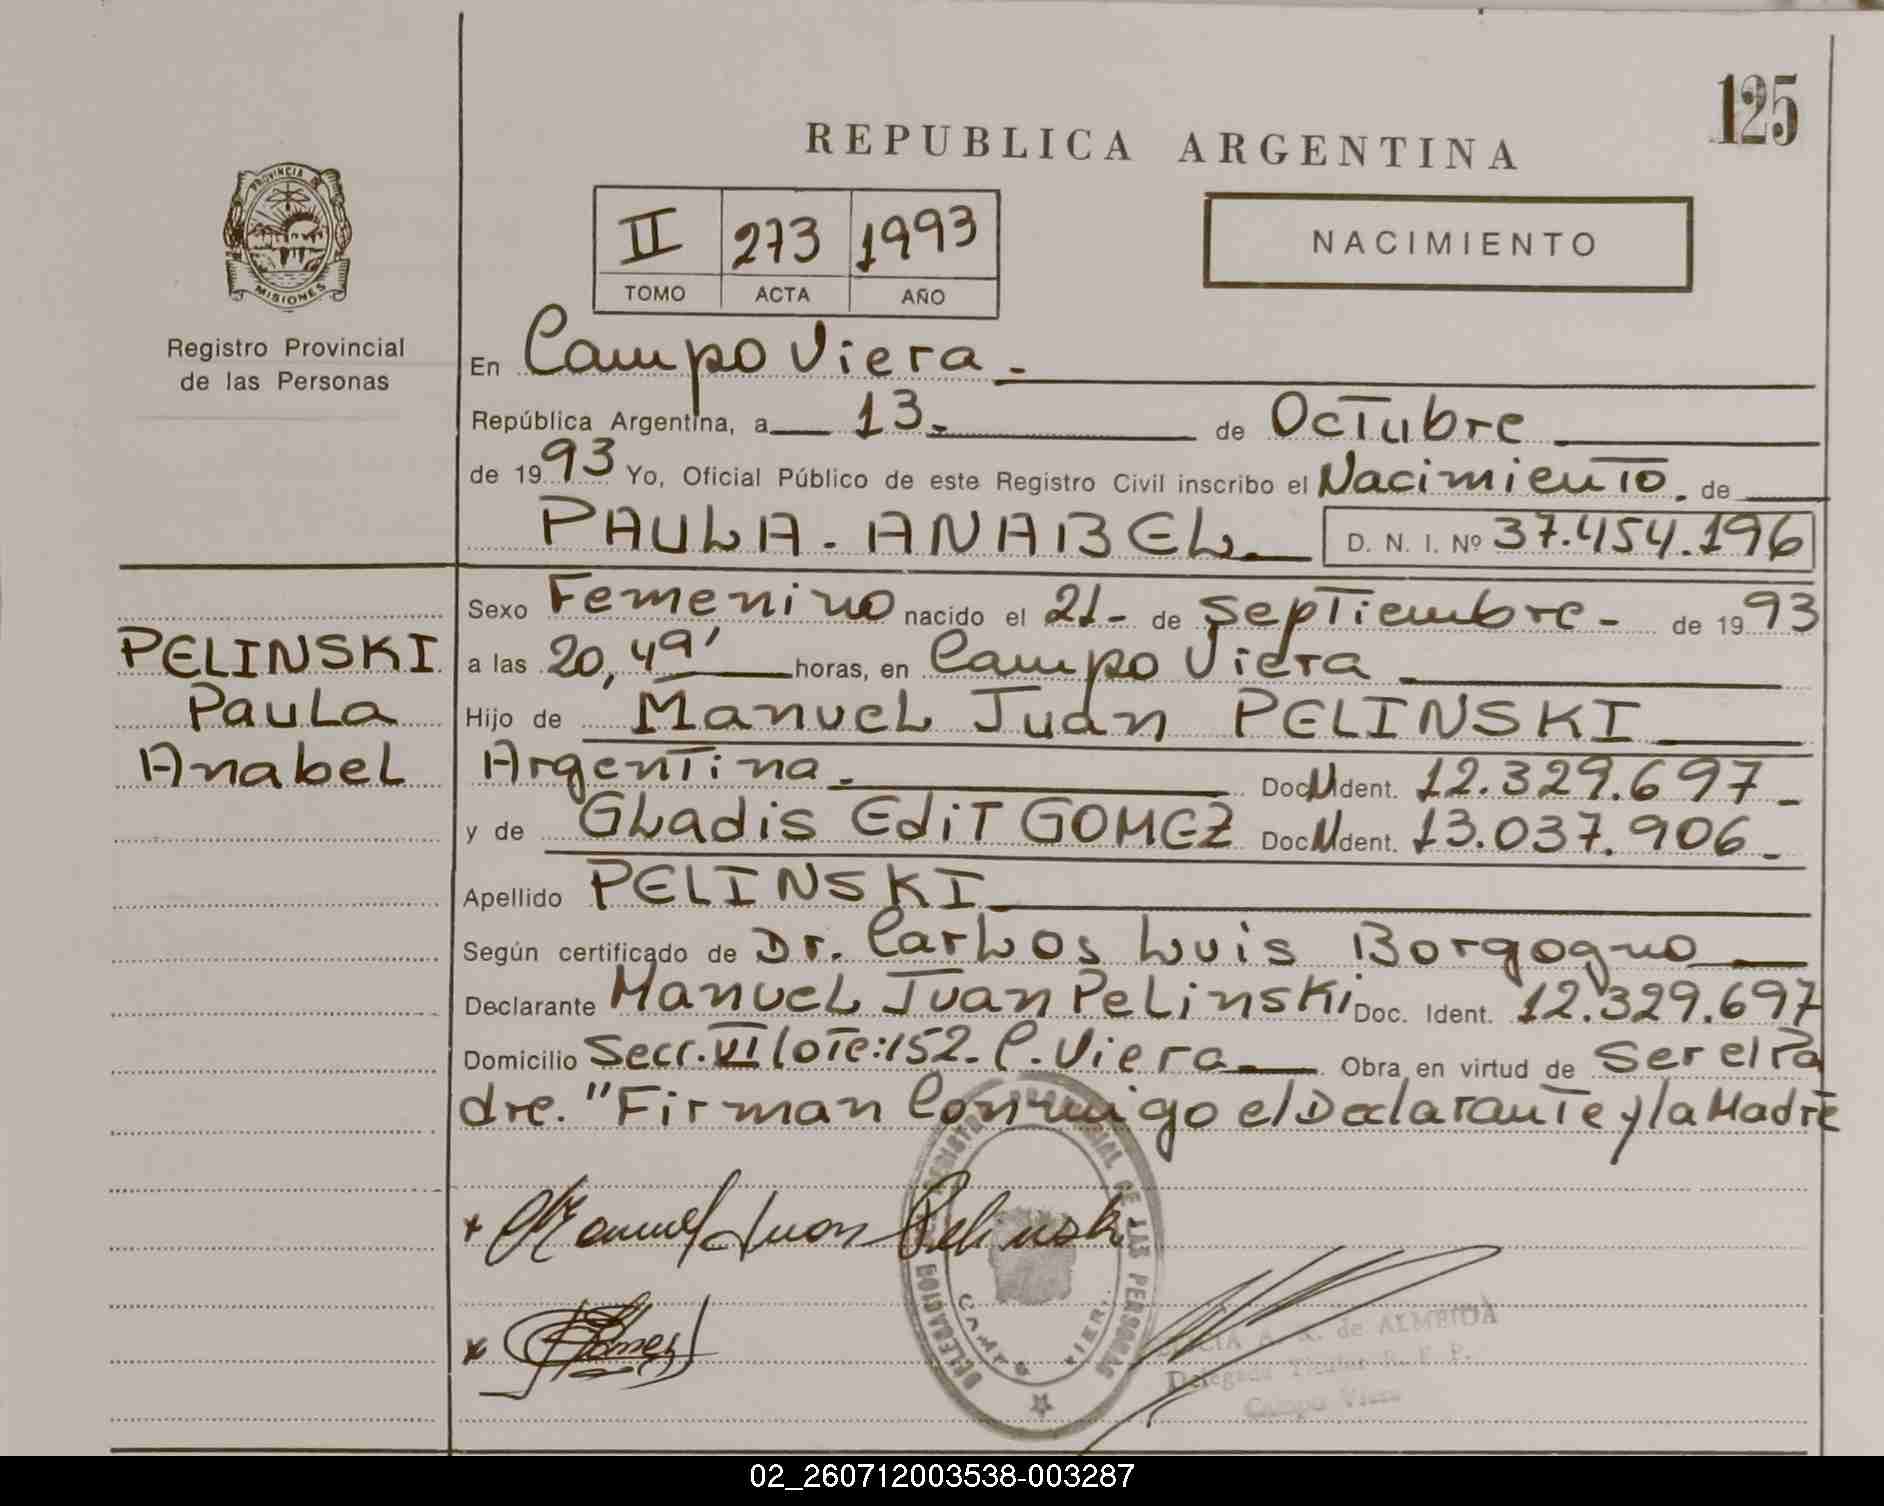 125
REPUBLICA ARGENTINA
PROVINCIA DE
MISIONES
II 273 1993
TOMO ACTA AÑO
NACIMIENTO
Registro Provincial
de las Personas
En Campo Viera.
República Argentina, a 13. de Octubre
de 1993 Yo, Oficial Público de este Registro Civil inscribo el Nacimiento. de
PAULA. ANABEL D. N. I. Nº 37.454.196
Sexo Femenino nacido el 21- de Septiembre- de 1993
a las 20,49' horas, en Campo Viera
Hijo de Manuel Juan PELINSKI
Argentina. Doc. N Ident. 12.329.697-
y de GLadis EdiT GOMEZ Doc. N Ident. 13.037.906-
Apellido PELINSKI
Según certificado de Dr. Carlos Luis Borgogno
Declarante Manuel Juan Pelinski Doc. Ident. 12.329.697
Domicilio Secc. VI lote:152- C. Viera Obra en virtud de Ser el Pa
dre. "Firman Conmigo el Declarante y la Madre
PELINSKI
Paula
Anabel
x Manuel Juan Pelinski
x Gomez
DELEGACION REGISTRO PROVINCIAL DE LAS PERSONAS
CAMPO VIERA
A. R. de ALMEIDA
Delegada Titular R. P. P.
Campo Viera
02_260712003538-003287